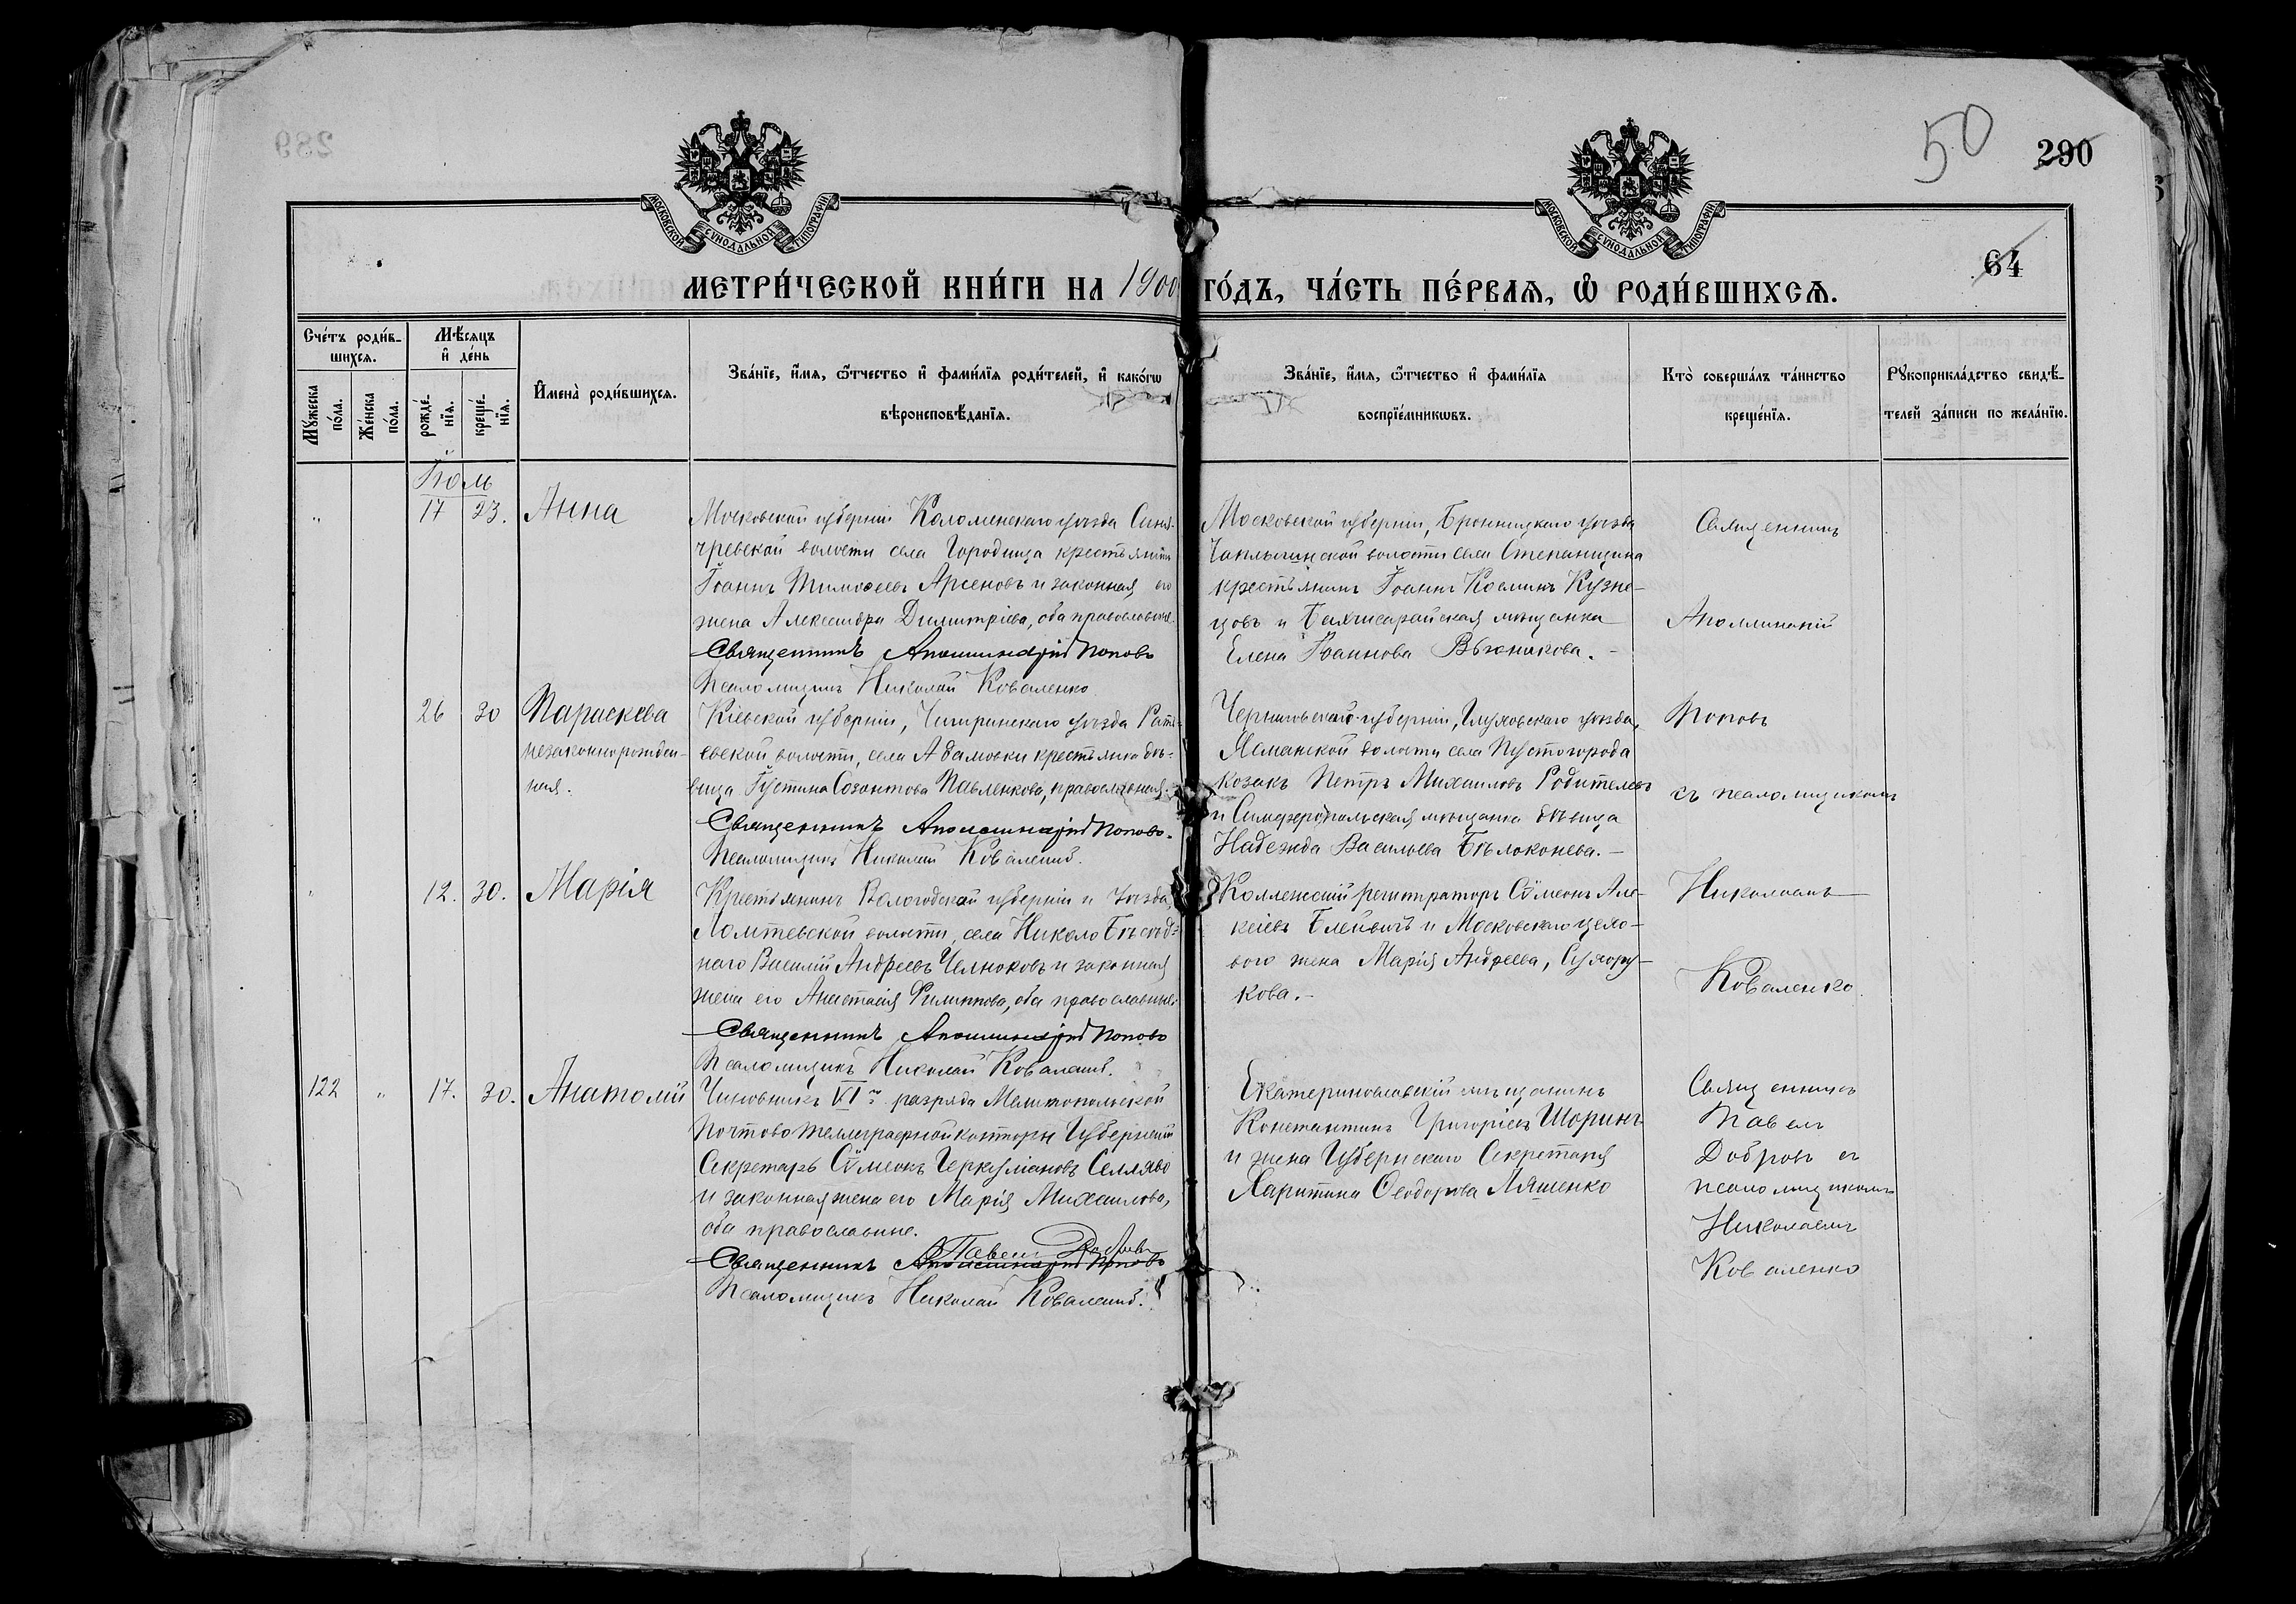 50
290
64
МОСКОВСКОЙ СѴНОДАЛЬНОЙ ТИПОГРАФІИ
МОСКОВСКОЙ СѴНОДАЛЬНОЙ ТИПОГРАФІИ
МЕТРИ́ЧЕСКОЙ КНИ́ГИ НА 1900 ГО́ДЪ, ЧА́СТЬ ПЕ́РВАѦ, Ѡ РОДИ́ВШИХСѦ.
Сче́тъ роди́в-
шихсѧ.
Мѣ́сѧцъ
и҆ де́нь
Мꙋжеска
по́ла.
Же́нска
по́ла.
рожде́-
нїѧ.
креще́-
нїѧ.
И҆мена̀ роди́вшихсѧ.
Зва́нїе, и҆́мѧ, ѻ҆́тчество и҆ фами́лїѧ роди́телей, и҆ како́гѡ
вѣроисповѣ́данїѧ.
Зва́нїе, и҆́мѧ, ѻ҆́тчество и҆ фами́лїѧ
воспрїе́мникѡвъ.
Кто̀ соверша́лъ та́инство
креще́нїѧ.
Рꙋкоприкла́дство свидѣ́-
телей за́писи по жела́нїю.
Іюль
17 23. Анна
Московской губерніи Коломенскаго уѣзда
волости села Городища крестьянинъ
Іоаннъ Тимоѳеевъ Арсеновъ и законная его
жена Александра Димитріева, оба православные.
Священникъ Аполлинарій Поповъ
Псаломщикъ Николай Коваленко
Московской губерніи, Бронницкаго уѣзда
Чаплыгинской волости села Степанщина
крестьянинъ Іоаннъ Косминъ Кузне-
цовъ и Бахчисарайская мѣщанка
Елена Іоаннова
Священникъ
Аполлинарій
26 30 Параскева
незаконнорожден-
ная.
Кіевской губерніи, Чигиринскаго уѣзда Рата-
евской волости, села Адамовки крестьянка дѣ-
вица Іустина Созонтова Павленкова, православная.
Священникъ Аполлинарій Поповъ.
Псаломщикъ Николай Коваленко.
Черниговской губерніи, Глуховскаго уѣзда,
Ясманской волости села Пустогорода
козакъ Петръ Михаиловъ Родителевъ
и Симферопольская мѣщанка дѣвица
Надежда Васильева Бѣлоконева. —
Поповъ
съ псаломщикомъ
12. 30. Марія
Крестьянинъ Вологодской губерніи и уѣзда,
Ломтевской волости, села Николо Бѣсѣд-
наго Василій Андреевъ Челноковъ и законная
жена его Анастасія Филиппова, оба православные.
Священникъ Аполлинарій Поповъ
Псаломщикъ Николай Коваленко.
Коллежскій регистраторъ Сѵмеонъ Але-
ксіевъ и Московскаго цехо-
вого жена Марія Андреева, Сухору-
кова. —
Николаемъ
Коваленко
122 " 17. 30. Анатолій
Чиновникъ VI го разряда Мелитопольской
Почтово телеграфной конторы Губернскій
Секретарь Сѵмеонъ Геркуліановъ Селляво
и законная жена его Марія Михаилова,
оба православные.
Павелъ Добровъ
Священникъ Аполлинарій Поповъ
Псаломщикъ Николай Коваленко.
Екатеринославскій мѣщанинъ
Константинъ Григоріевъ Шоринъ
и жена Губернскаго Секретаря
Харитина Ѳеодорова Ляшенко
Священникъ
Павелъ
Добровъ съ
псаломщикомъ
Николаемъ
Коваленко